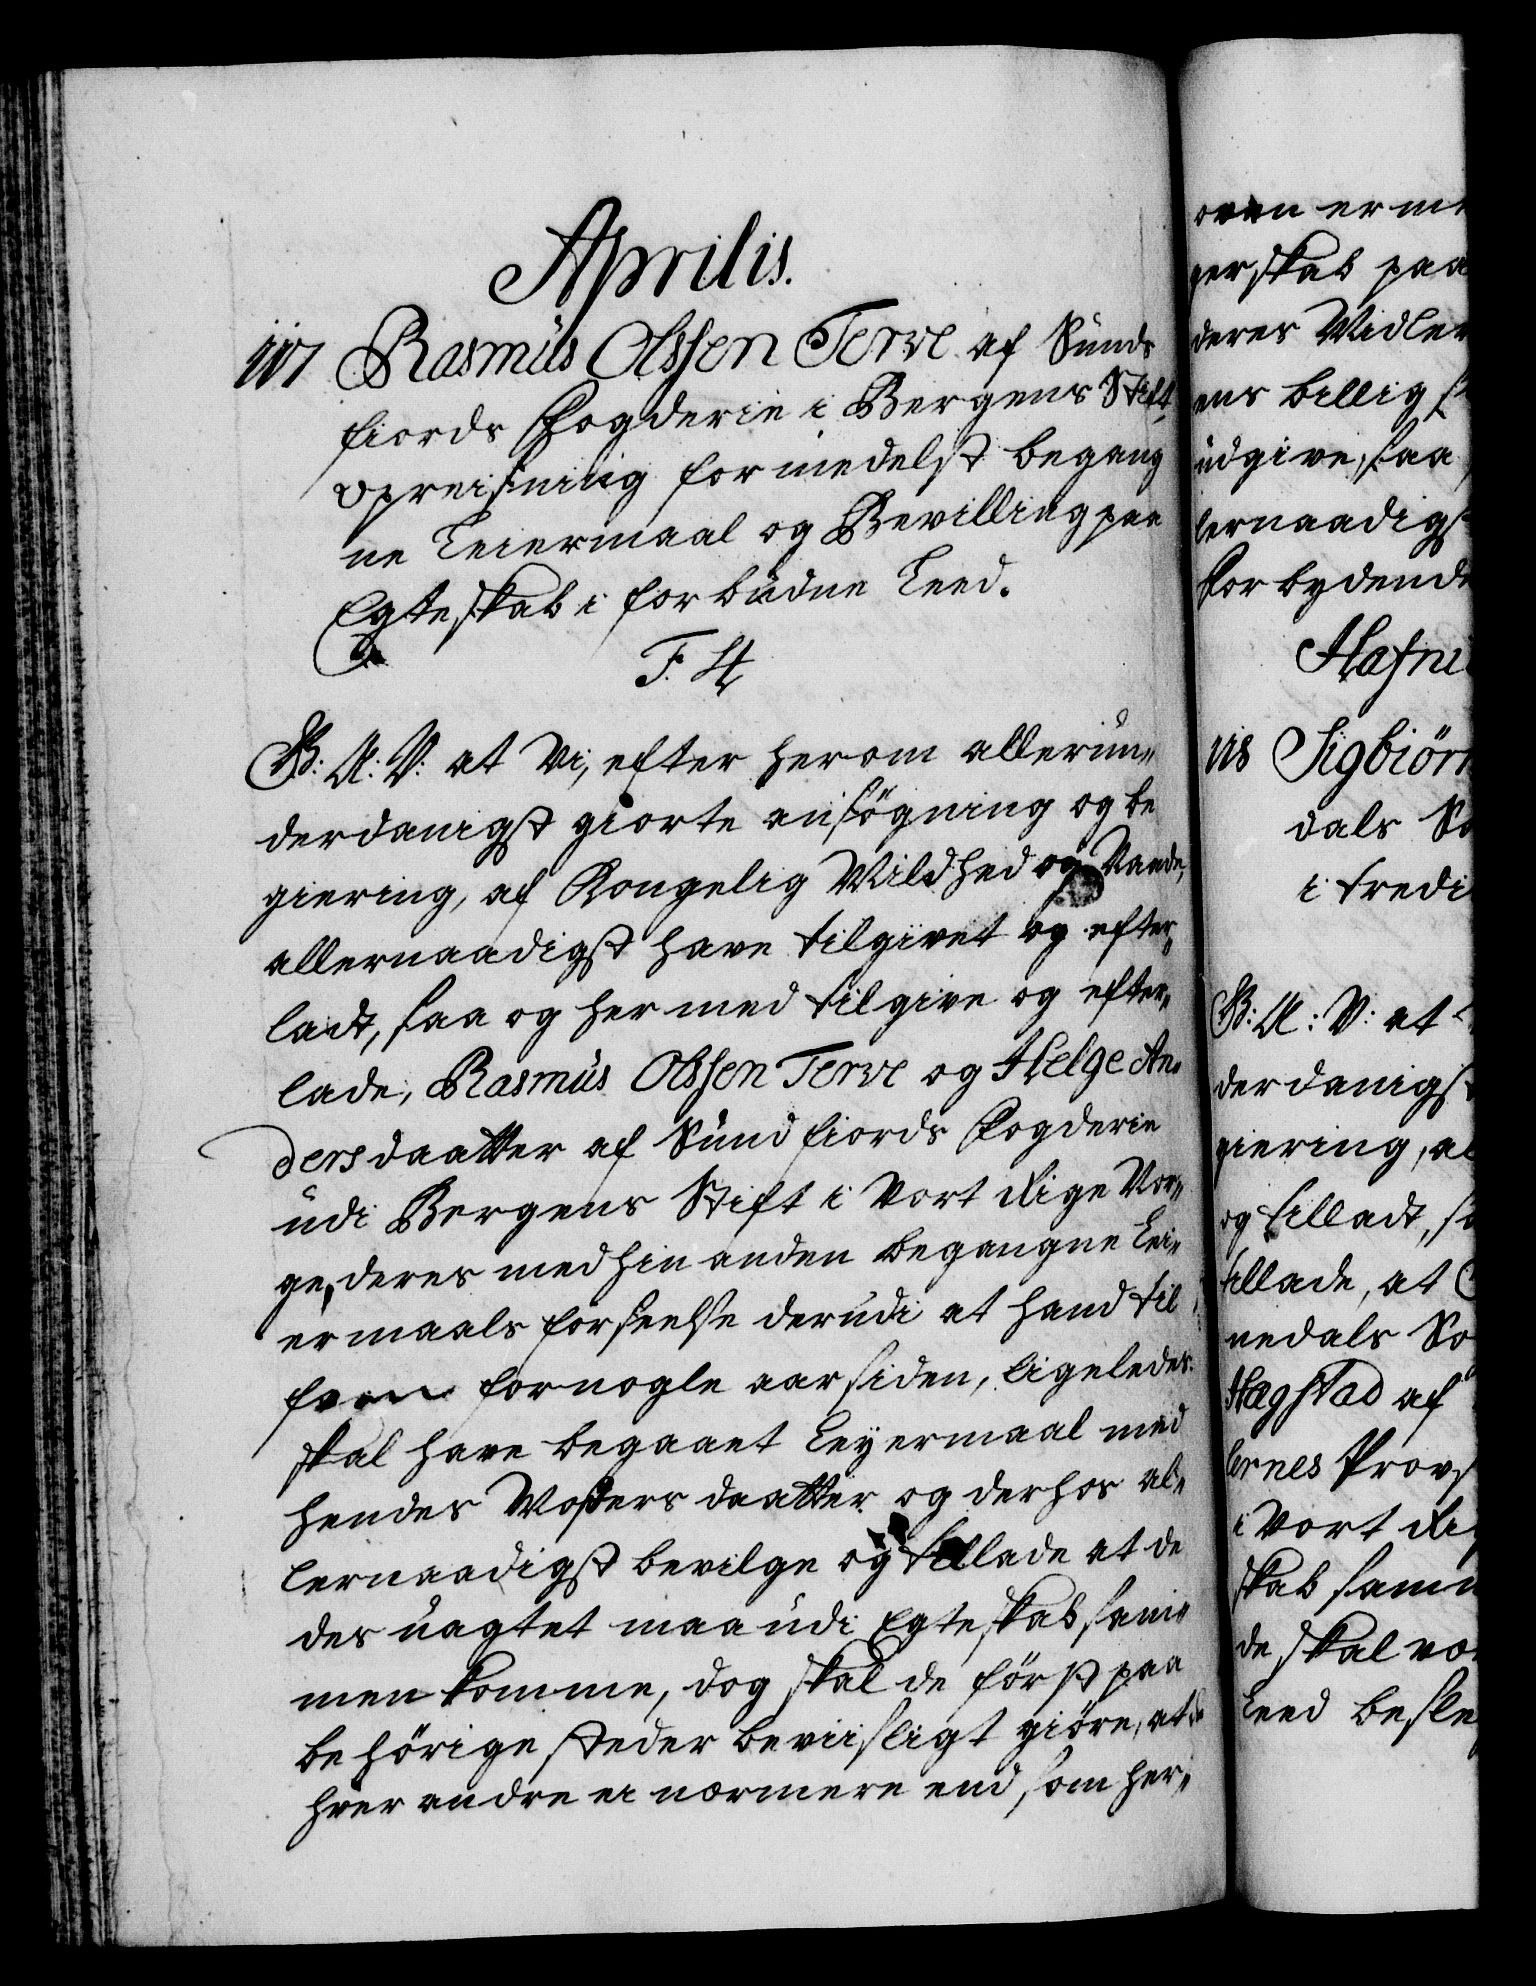 Aprilis.
117 Rasmus Olssen Terve af Sunds
fiords Fogderie i Bergens Stift
opreisning formedelst begang
ne Leiermaal og Bevilling paa
Egteskab i forbudne Leed.
F. 4
G: A: V: at Vi, efter herom allerun„
derdanigst giorte ansögning og be
giering, af Kongelig Mildhed og Naade,
allernaadigst have tilgivet og efter„
ladt, saa og hermed tilgive og efter„
lade, Rasmus Olssen Terve og Helge An„
ders daatter af Sundfiords Fogderie
udi Bergens Stift i Vort Rige Nor„
ge, deres med hin anden begangne Lei„
ermaals forseelse derudi at hand til
forn for nogle aar siden, ligeledes
skal have begaaet Leyermaal med
hendes Mosters daatter og derhos al„
lernaadigst bevilge og tillade at de
des uagtet maa udi Egteskab sam„
men komme, dog skal de först paa
behörige steder beviisligt giöre, at de
hver andre ei nærmere end, som her„
oven erme
gerskab paa
deres Vidler
ens billig
udgive, saa
lernaadigst
Forbydende
Hafni
118 Sigbiörn
dals So
i tredi
G: A: V: at
derdanigst
giering, al
og tilladt, sa
tillade, at
nedals So
Hegstad af
ernes Provs
i Vort Rig
skab samm
de skal væ
Leed besle